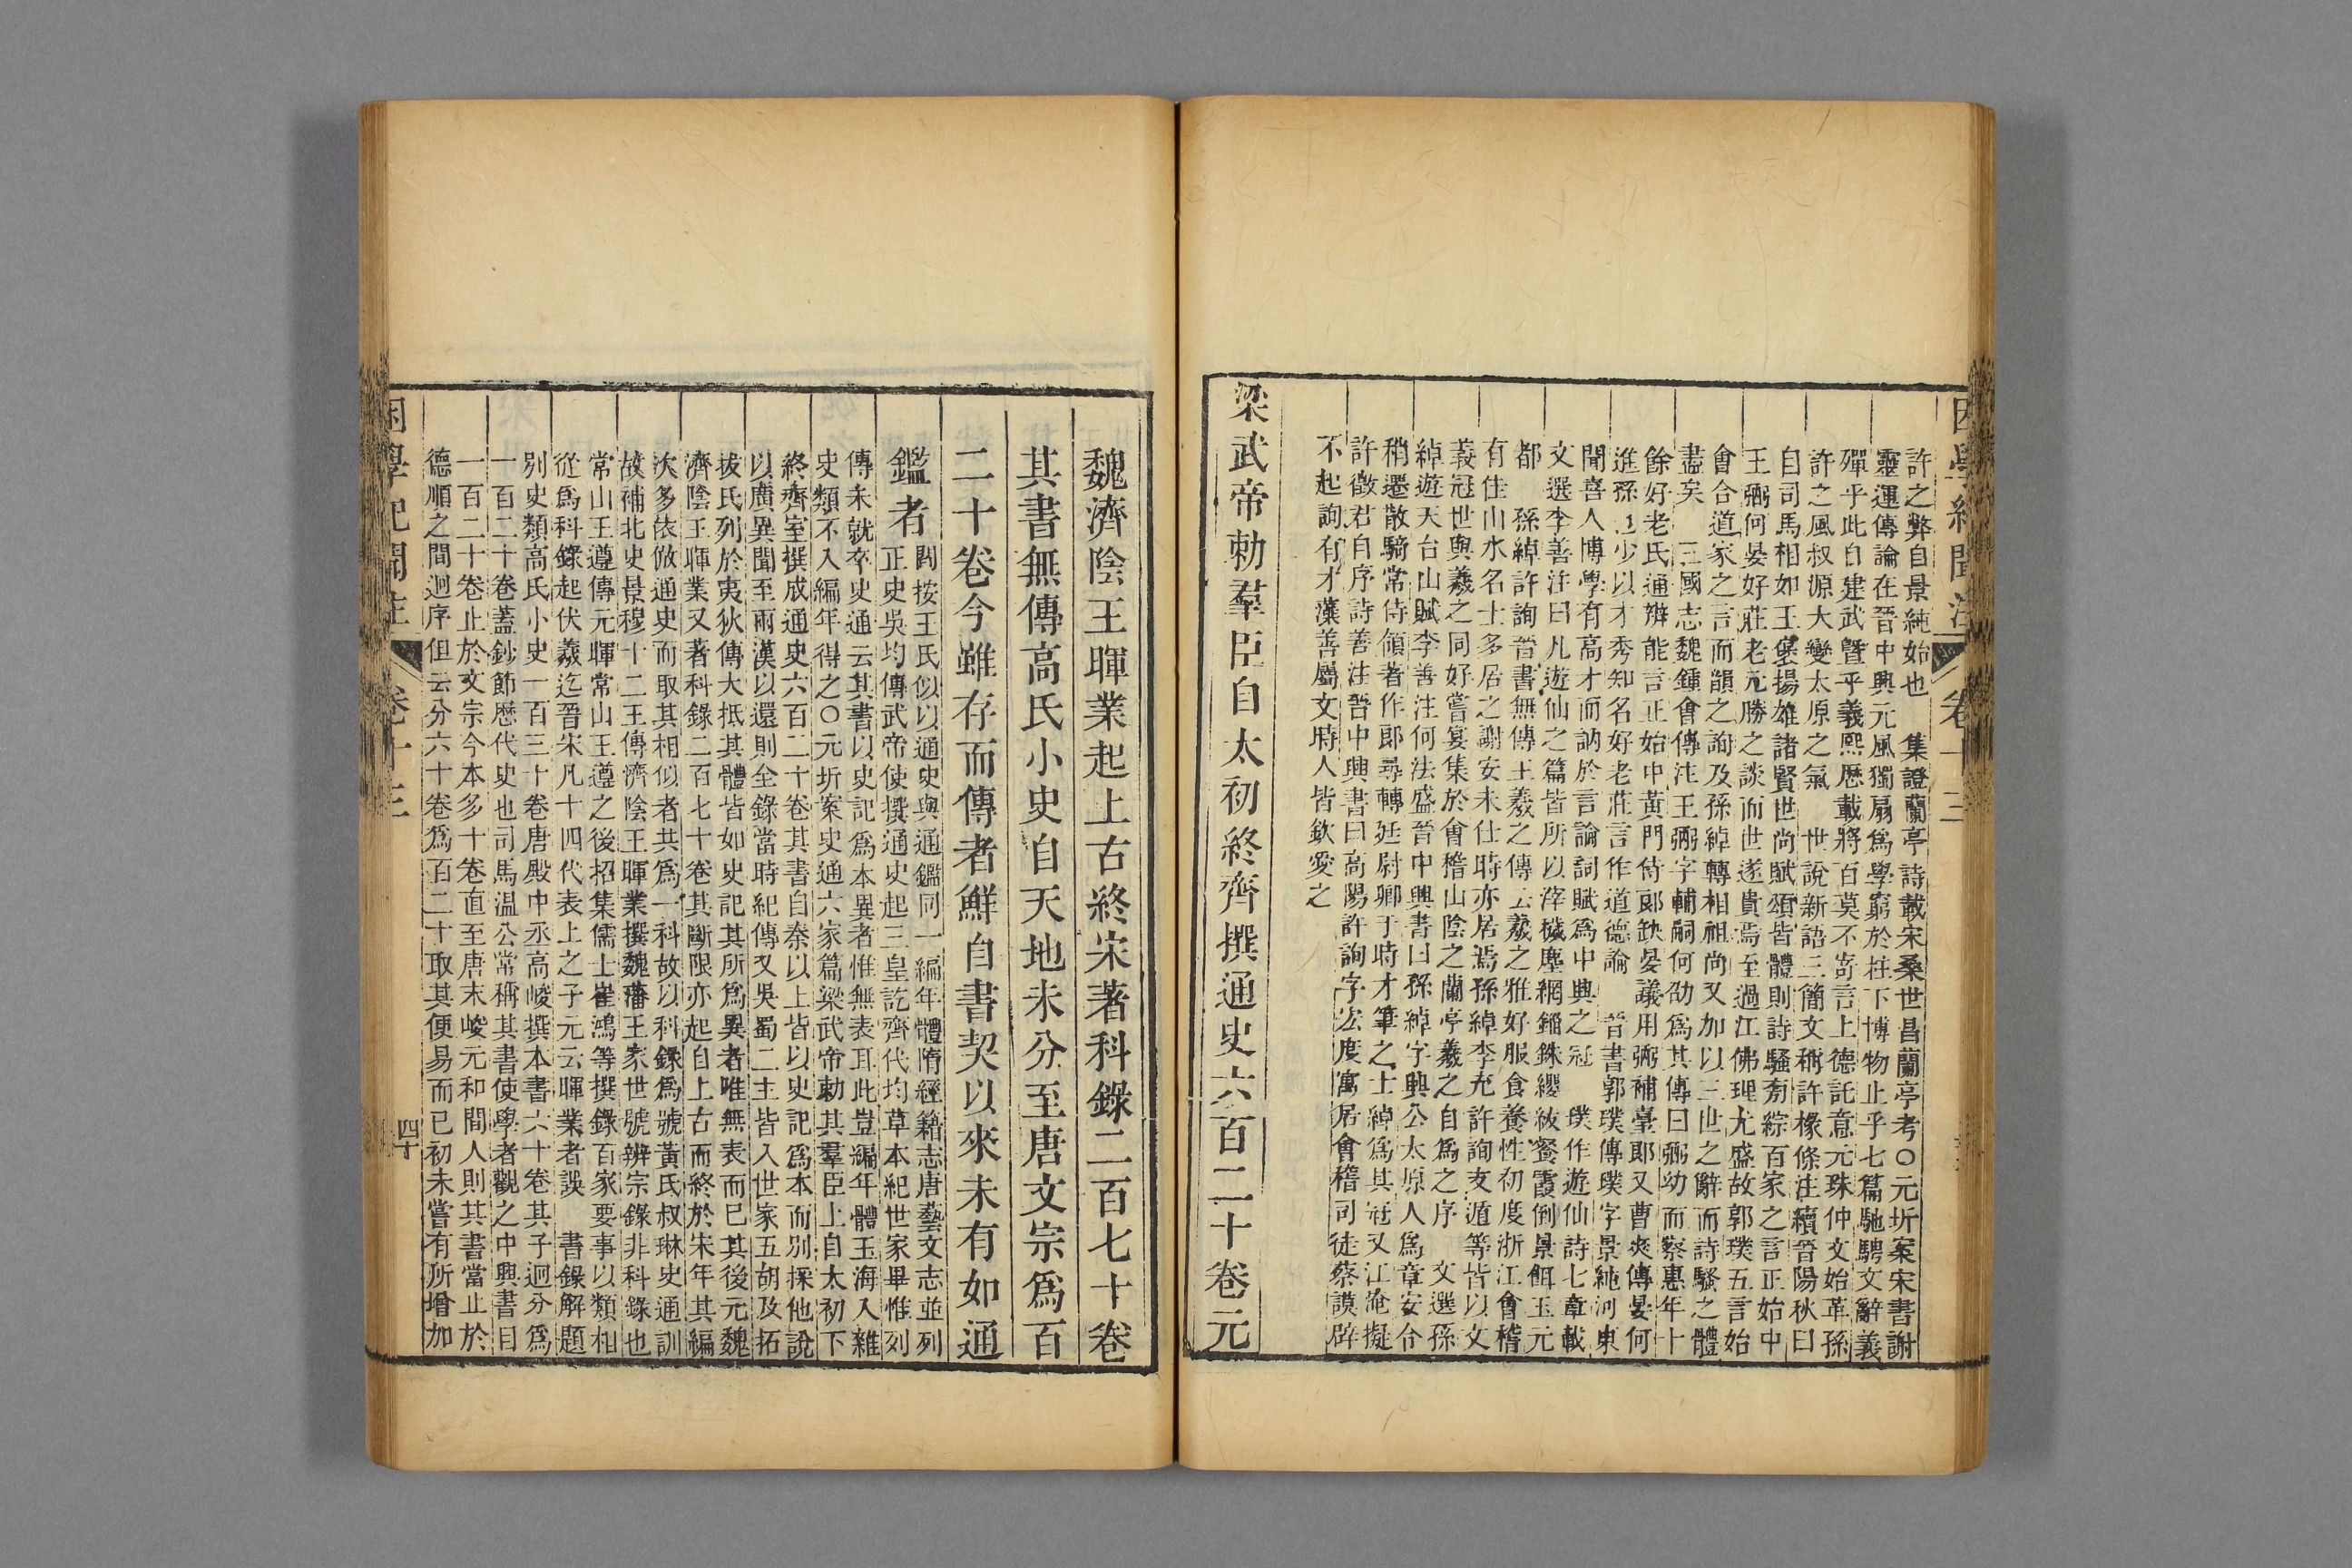 困學紀聞注 卷十三
許之弊自景純始也 集證蘭亭詩載宋桑世昌蘭亭考○元圻案宋書謝
靈運傳論在晉中興元風獨扇爲學窮於柱下博物止乎七篇馳騁文辭義
殫乎此自建武暨乎義熙歷載將百莫不寄言上德託意元珠仲文始革孫
許之風叔源大變太原之氣 世說新語三簡文稱許掾條注續晉陽秋曰
自司馬相如王襃揚雄諸賢世尚賦頌皆體則詩騷旁綜百家之言正始中
王弼何晏好莊老元勝之談而世遂貴焉至過江佛理尤盛故郭璞五言始
會合道家之言而韻之詢及孫綽轉相祖尚又加以三世之辭而詩騷之體
盡矣 三國志魏鍾會傳注王弼字輔嗣何劭爲其傳曰弼幼而察惠年十
餘好老氏通辨能言正始中黃門侍郎缺晏議用弼補臺郎又曹爽傳晏何
進孫也少以才秀知名好老莊言作道德論 晉書郭璞傳璞字景純河東
聞喜人博學有高才而訥於言論詞賦爲中興之冠 璞作遊仙詩七章載
文選李善注曰凡遊仙之篇皆所以滓穢塵網錙銖纓紱餐霞倒景餌玉元
都 孫綽許詢晉書無傳王羲之傳云羲之雅好服食養性初度浙江會稽
有佳山水名士多居之謝安未仕時亦居焉孫綽李充許詢支遁等皆以文
義冠世與羲之同好嘗宴集於會稽山陰之蘭亭羲之自爲之序 文選孫
綽遊天台山賦李善注何法盛晉中興書曰孫綽字興公太原人爲章安令
稍遷散騎常侍領著作郎尋轉廷尉卿于時才筆之士綽爲其冠又江淹擬
許徵君自序詩善注晉中興書曰高陽許詢字玄度寓居會稽司徒蔡謨辟
不起詢有才藻善屬文時人皆欽愛之
梁武帝勅羣臣自太初終齊撰通史六百二十卷元
魏濟陰王暉業起上古終宋著科錄二百七十卷
其書無傳高氏小史自天地未分至唐文宗爲百
二十卷今雖存而傳者鮮自書契以來未有如通
鑑者 閻按王氏似以通史與通鑑同一編年體隋經籍志唐藝文志並列
正史吳均傳武帝使撰通史起三皇訖齊代均草本紀世家畢惟列
傳未就卒史通云其書以史記爲本異者惟無表耳此豈編年體玉海入雜
史類不入編年得之○元圻案史通六家篇梁武帝勅其羣臣上自太初下
終齊室撰成通史六百二十卷其書自秦以上皆以史記爲本而別採他說
以廣異聞至兩漢以還則全錄當時紀傳又吳蜀二主皆入世家五胡及拓
拔氏列於夷狄傳大抵其體皆如史記其所爲異者唯無表而已其後元魏
濟陰王暉業又著科錄二百七十卷其斷限亦起自上古而終於宋年其編
次多依倣通史而取其相似者共爲一科故以科錄爲號黃氏叔琳史通訓
故補北史景穆十二王傳濟陰王暉業撰魏藩王家世號辨宗錄非科錄也
常山王遵傳元暉常山王遵之後招集儒士崔鴻等撰錄百家要事以類相
從爲科錄起伏羲迄晉宋凡十四代表上之子元云暉業者誤 書錄解題
別史類高氏小史一百三十卷唐殿中丞高峻撰本書六十卷其子迥分爲
一百二十卷蓋鈔節歷代史也司馬溫公常稱其書使學者觀之中興書目
一百二十卷止於文宗今本多十卷直至唐末峻元和間人則其書當止於
德順之間迥序但云分六十卷爲百二十取其便易而已初未嘗有所增加
困學紀聞注 卷十三 四十